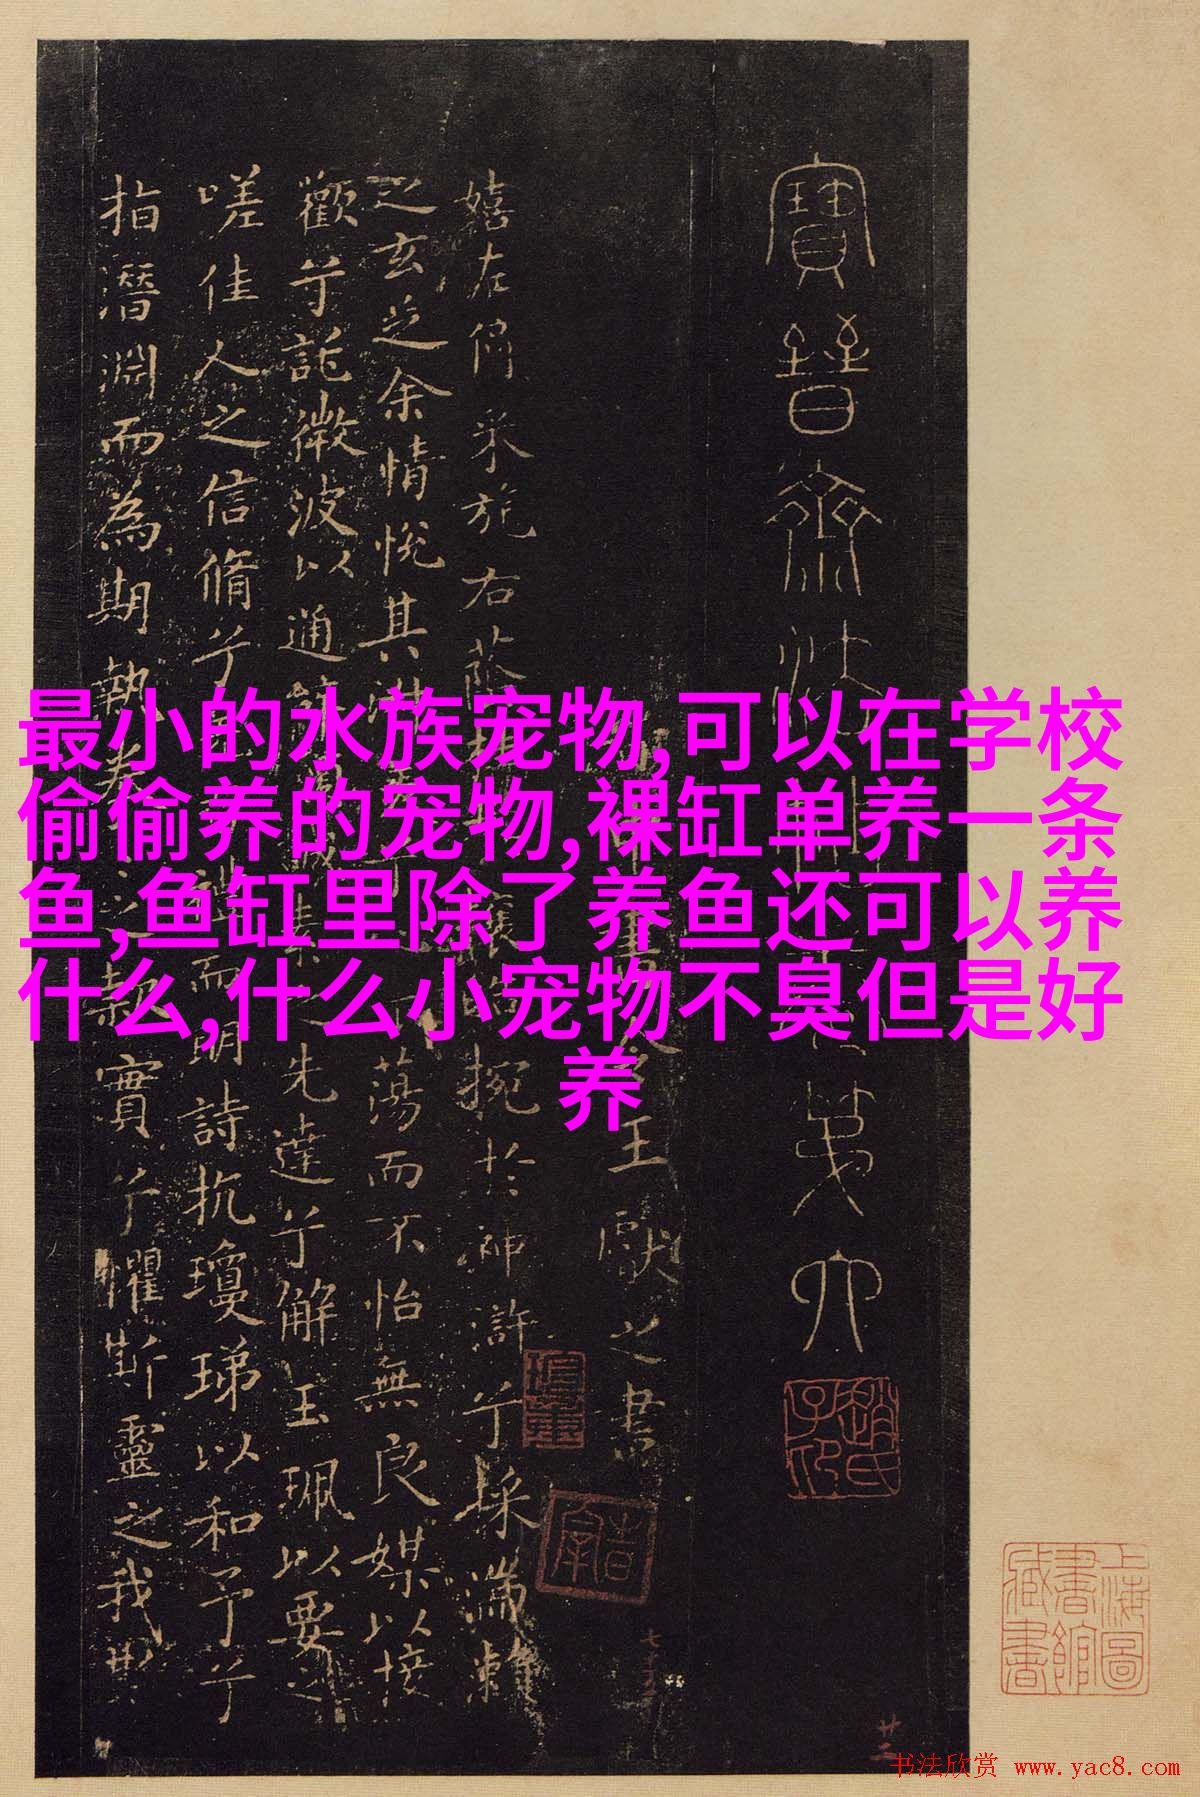 寶晉齋法
王獻之書
嬉左倚采旄右蔭
攘皓腕於神滸兮採湍瀨
之玄芝余情悅其淑
蕩而不怡無良媒以接
歡兮託微波以通
先達兮解玉珮以要
嗟佳人之信脩兮
而明詩抗瓊珶以和予兮
指潛淵而為期執
之款實兮懼斯靈之我
最小的水族宠物,可以在学校
偷偷养的宠物,裸缸单养一条
鱼,鱼缸里除了养鱼还可以养
什么,什么小宠物不臭但是好
养
上海圖書館藏書
书法欣赏 www.yac8.com